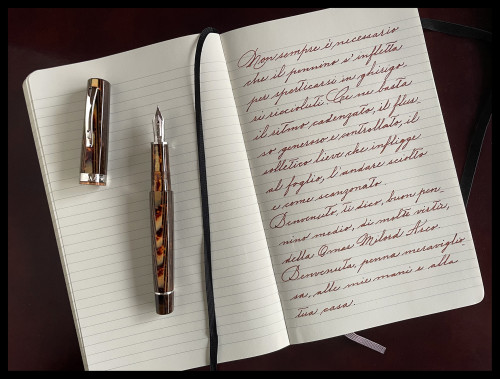 Non sempre è necessario
che il pennino s'infletta
per sporticarsi in ghirigo-
ri riccioluti. Ce ne basta
il ritmo cadenzato, il flus-
so generoso e controllato, il
solletico lieve che infligge
al foglio, l'andare sciolto
e come scanzonato.
Benvenuto, ti dico, buon pen-
nino medio, di molte virtù,
della Omas Milord Arco.
Benvenuta, penna meraviglio-
sa, alle mie mani e alla
tua casa.